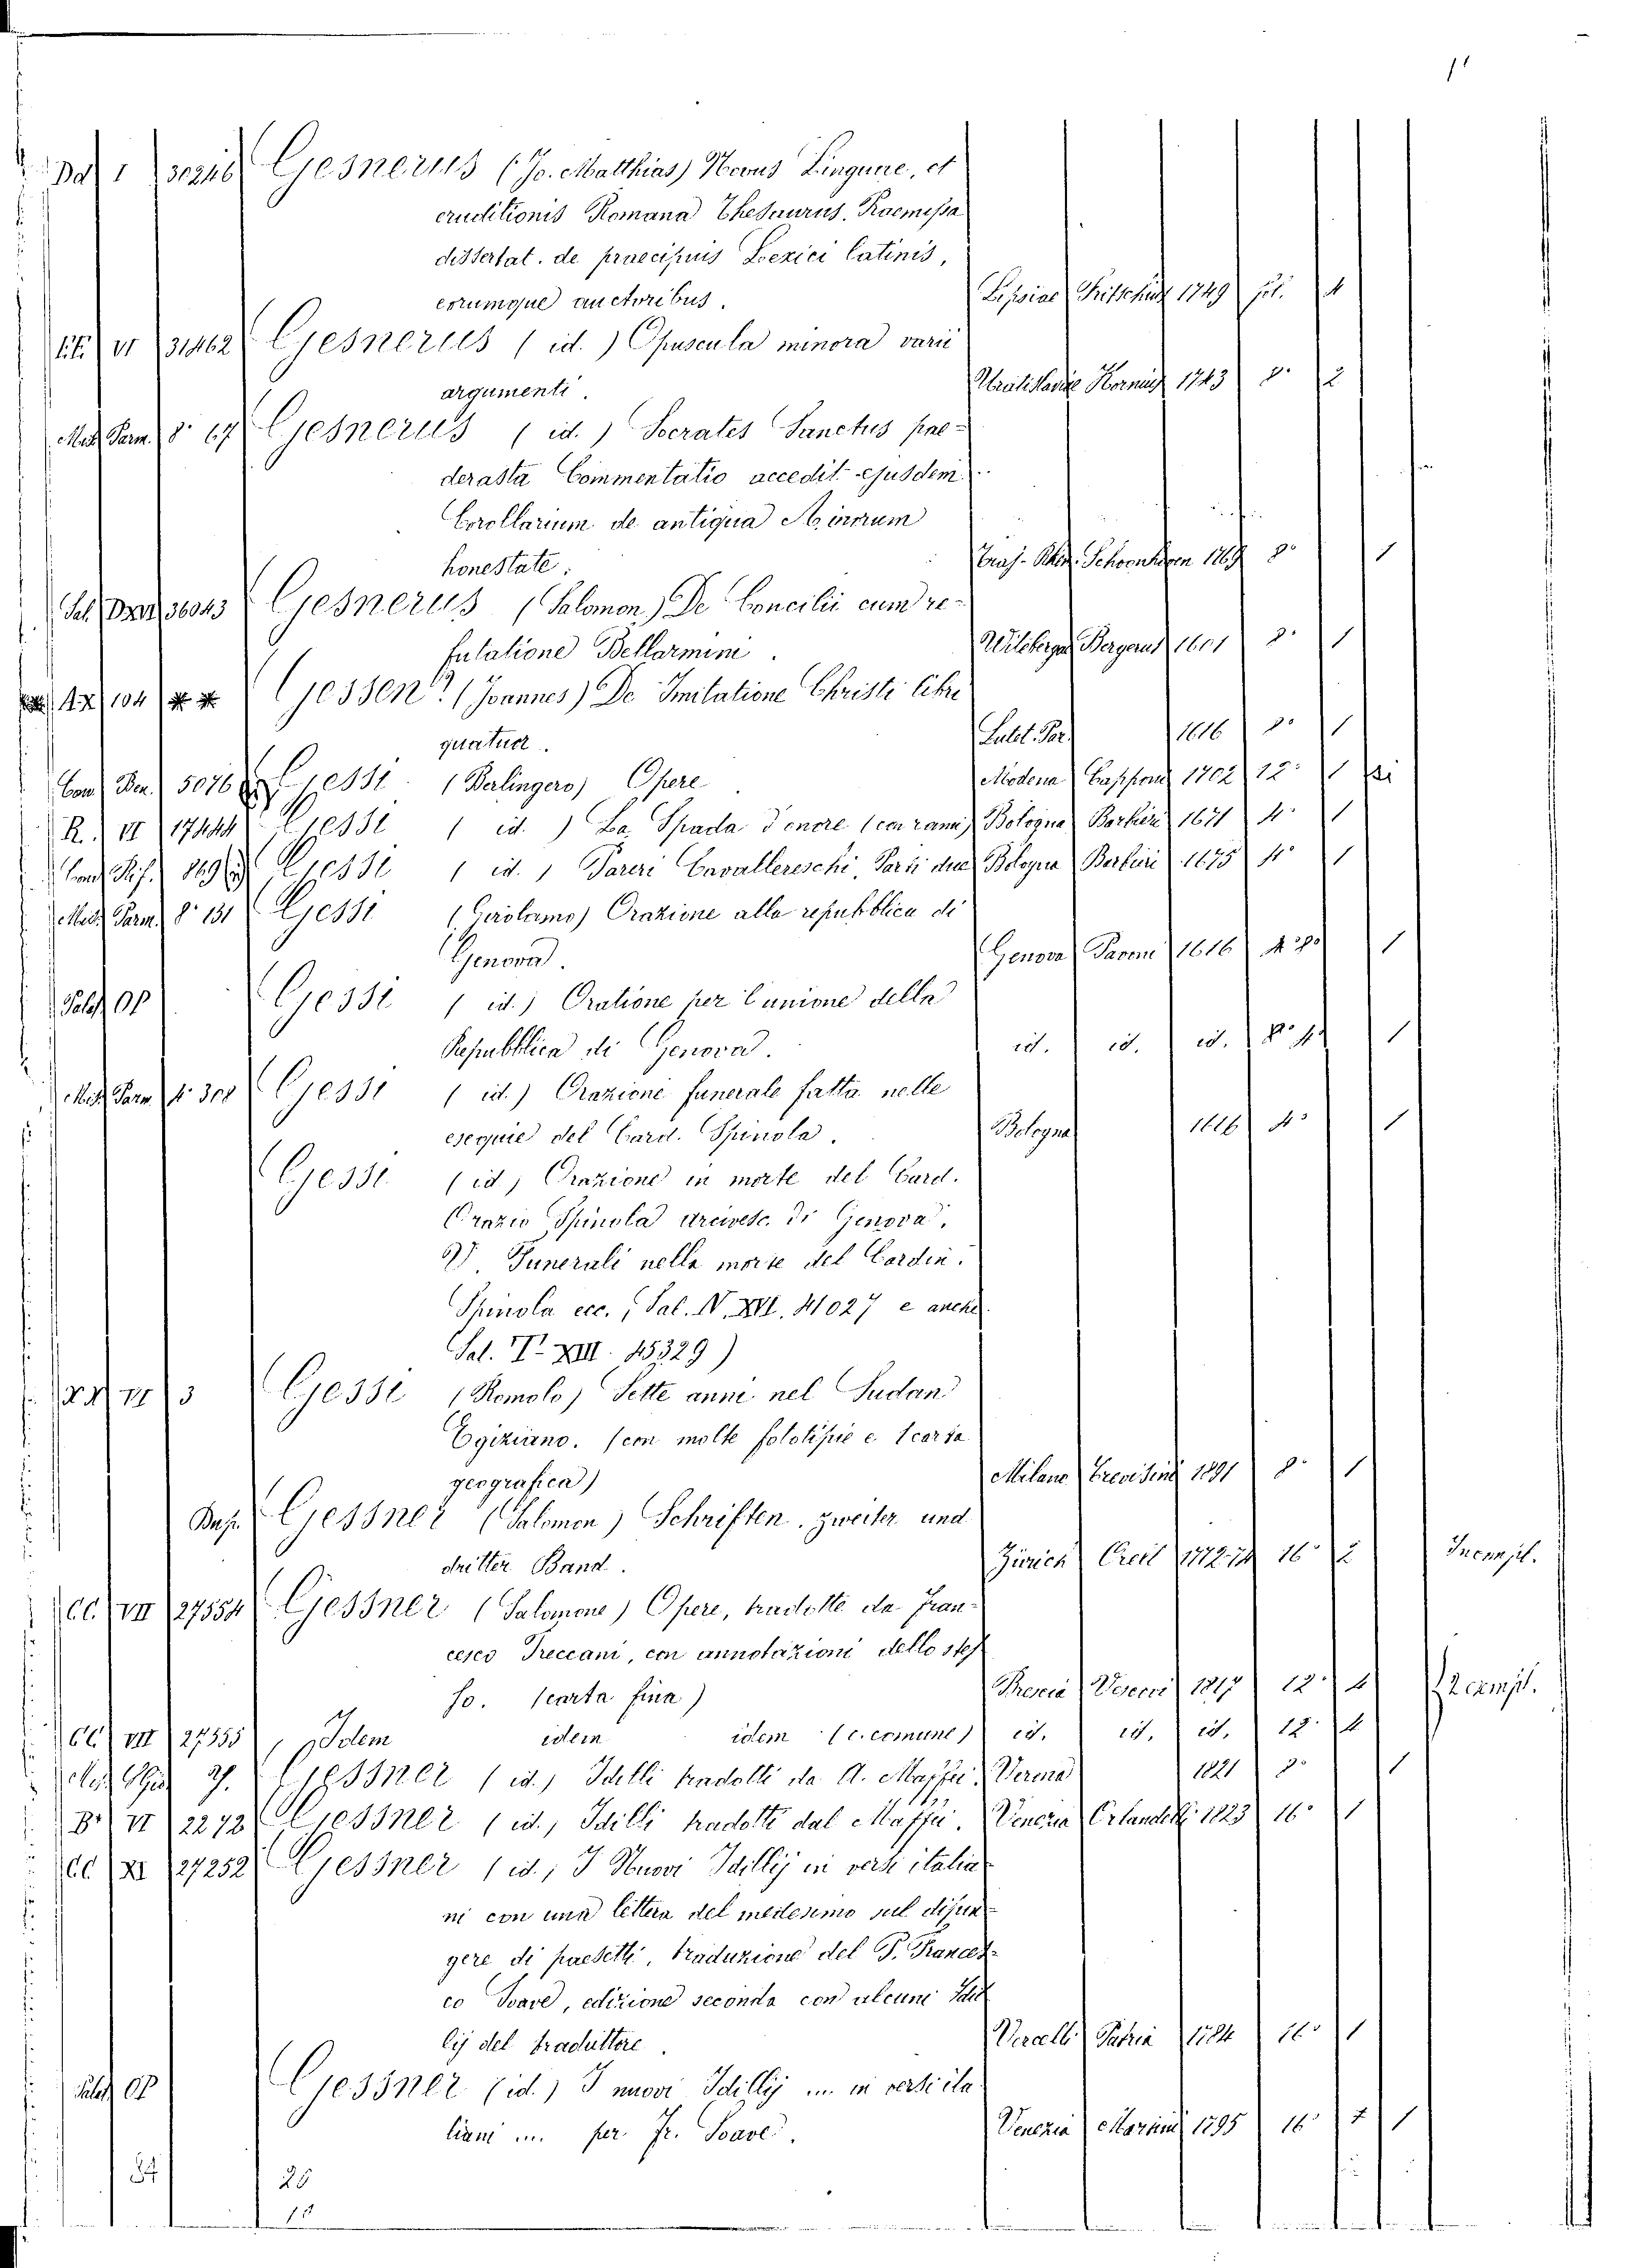 Pal I 30246 Gesnerus (Jo. Matthias) Novus Linguae, et
eruditionis Romanae Thesaurus. Praemissa
dissertat. de praecipuis Lexici latinis,
eorumque auctoribus. Lipsiae Fritschius 1749 fol. 4
VI 31462 Gesnerus (id.) Opuscula minora varii
argumenti. Uratislaviae Kornius 1743 8° 2
Misc. Parm. 8° 67 Gesnerus (id.) Socrates Sanctus pae-
derasta Commentatio accedit ejusdem
Corollarium de antiqua Asinorum
honestate. Traj. Rhen. Schoonhoven 1769 8° 1
Sal. 36043 Gesnerus (Salomon) De Concilii cum re-
futatione Bellarmini. Witebergae Bergerus 1601 8° 1
104 ** Gessen? (Joannes) De Imitatione Christi libri
quatuor. Lutet. Par. 1616 8° 1
5076 Gessi (Berlingero) Opere Modena Capponi 1702 12° 1
R. VI 17444 Gessi (id.) La Spada d'onore (con rami) Bologna Barbieri 1671 4° 1
869 Gessi (id.) Pareri Cavallereschi, Parti due Bologna Barbieri 1675 4° 1
Misc. Parm. 8° 131 Gessi (Girolamo) Orazione alla repubblica di
Genova. Genova Pavoni 1616 4° 1
Palat. OP Gessi (id.) Oratione per l'unione della
Repubblica di Genova. id. id. id. 1
Misc. Parm. 4° 308 Gessi (id.) Orazione funerale fatta nelle
esequie del Card. Spinola. Bologna 1616 4° 1
Gessi (id) Orazione in morte del Card.
Orazio Spinola arcivesc. di Genova.
V. Funerali nella morte del Cardin.
Spinola ecc. (Sal. N. XVI. 41027 e anche
Sal. T. XIII. 45329)
VI 3 Gessi (Romolo) Sette anni nel Sudan
Egiziano. (con molte fototipie e 1 carta
geografica) Milano 1891 8° 1
Gessner (Salomon) Schriften. zweiter und
dritter Band. Zürich Orell 1772-74 16° 2 Incompl.
CC. VII 27554 Gessner (Salomone) Opere, tradotte da Fran-
cesco Treccani, con annotazioni dello stes-
so. (carta fina) Brescia Vescovi 1817 12° 4 2 esempl.
CC. VII 27555 Idem idem idem (c. comune) id. id. id. 12° 4
Gessner (id.) Idilli tradotti da A. Maffei Verona 1821 8° 1
B. VI 2272 Gessner (id.) Idilli tradotti dal Maffei. Venezia Orlandelli 1823 16° 1
CC XI 27252 Gessner (id.) I Nuovi Idillij in versi italia-
ni con una lettera del medesimo sul dipin-
gere di paesetti, traduzione del P. Frances-
co Soave, edizione seconda con alcuni Idil-
lij del traduttore. Vercelli Patria 1784 16° 1
Palat. OP Gessner (id.) I nuovi Idillij ... in versi ita-
liani ... per Fr. Soave. Venezia 1795 16° 1
25